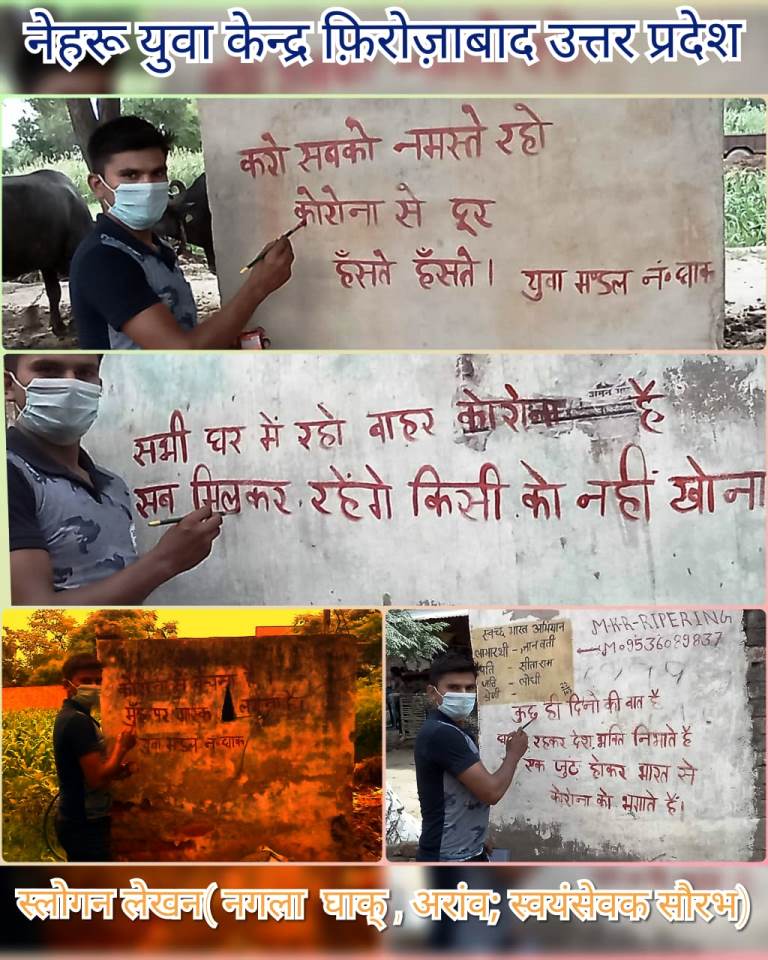 नेहरू युवा केन्द्र फ़िरोज़ाबाद उत्तर प्रदेश
करो सबको नमस्ते रहो
कोरोना से दूर
हँसते हँसते।
युवा मण्डल नं॰ घाक
सभी घर में रहो बाहर कोरोना है
सब मिलकर रहेंगे किसी को नहीं खोना
मुँह पर मास्क
युवा मण्डल नं॰ घाक
स्वच्छ भारत अभियान
लाभारथी - ज्ञानवती
पति - सीताराम
जाति - लोधी
M.K.R-RIPERING
Mo9536089837
कुछ ही दिनो की बात है
रहकर देश भक्ति निभाते है
एक जुट होकर भारत से
कोरोना को भगाते है।
स्लोगन लेखन( नगला घाक् , अरांव; स्वयंसेवक सौरभ)